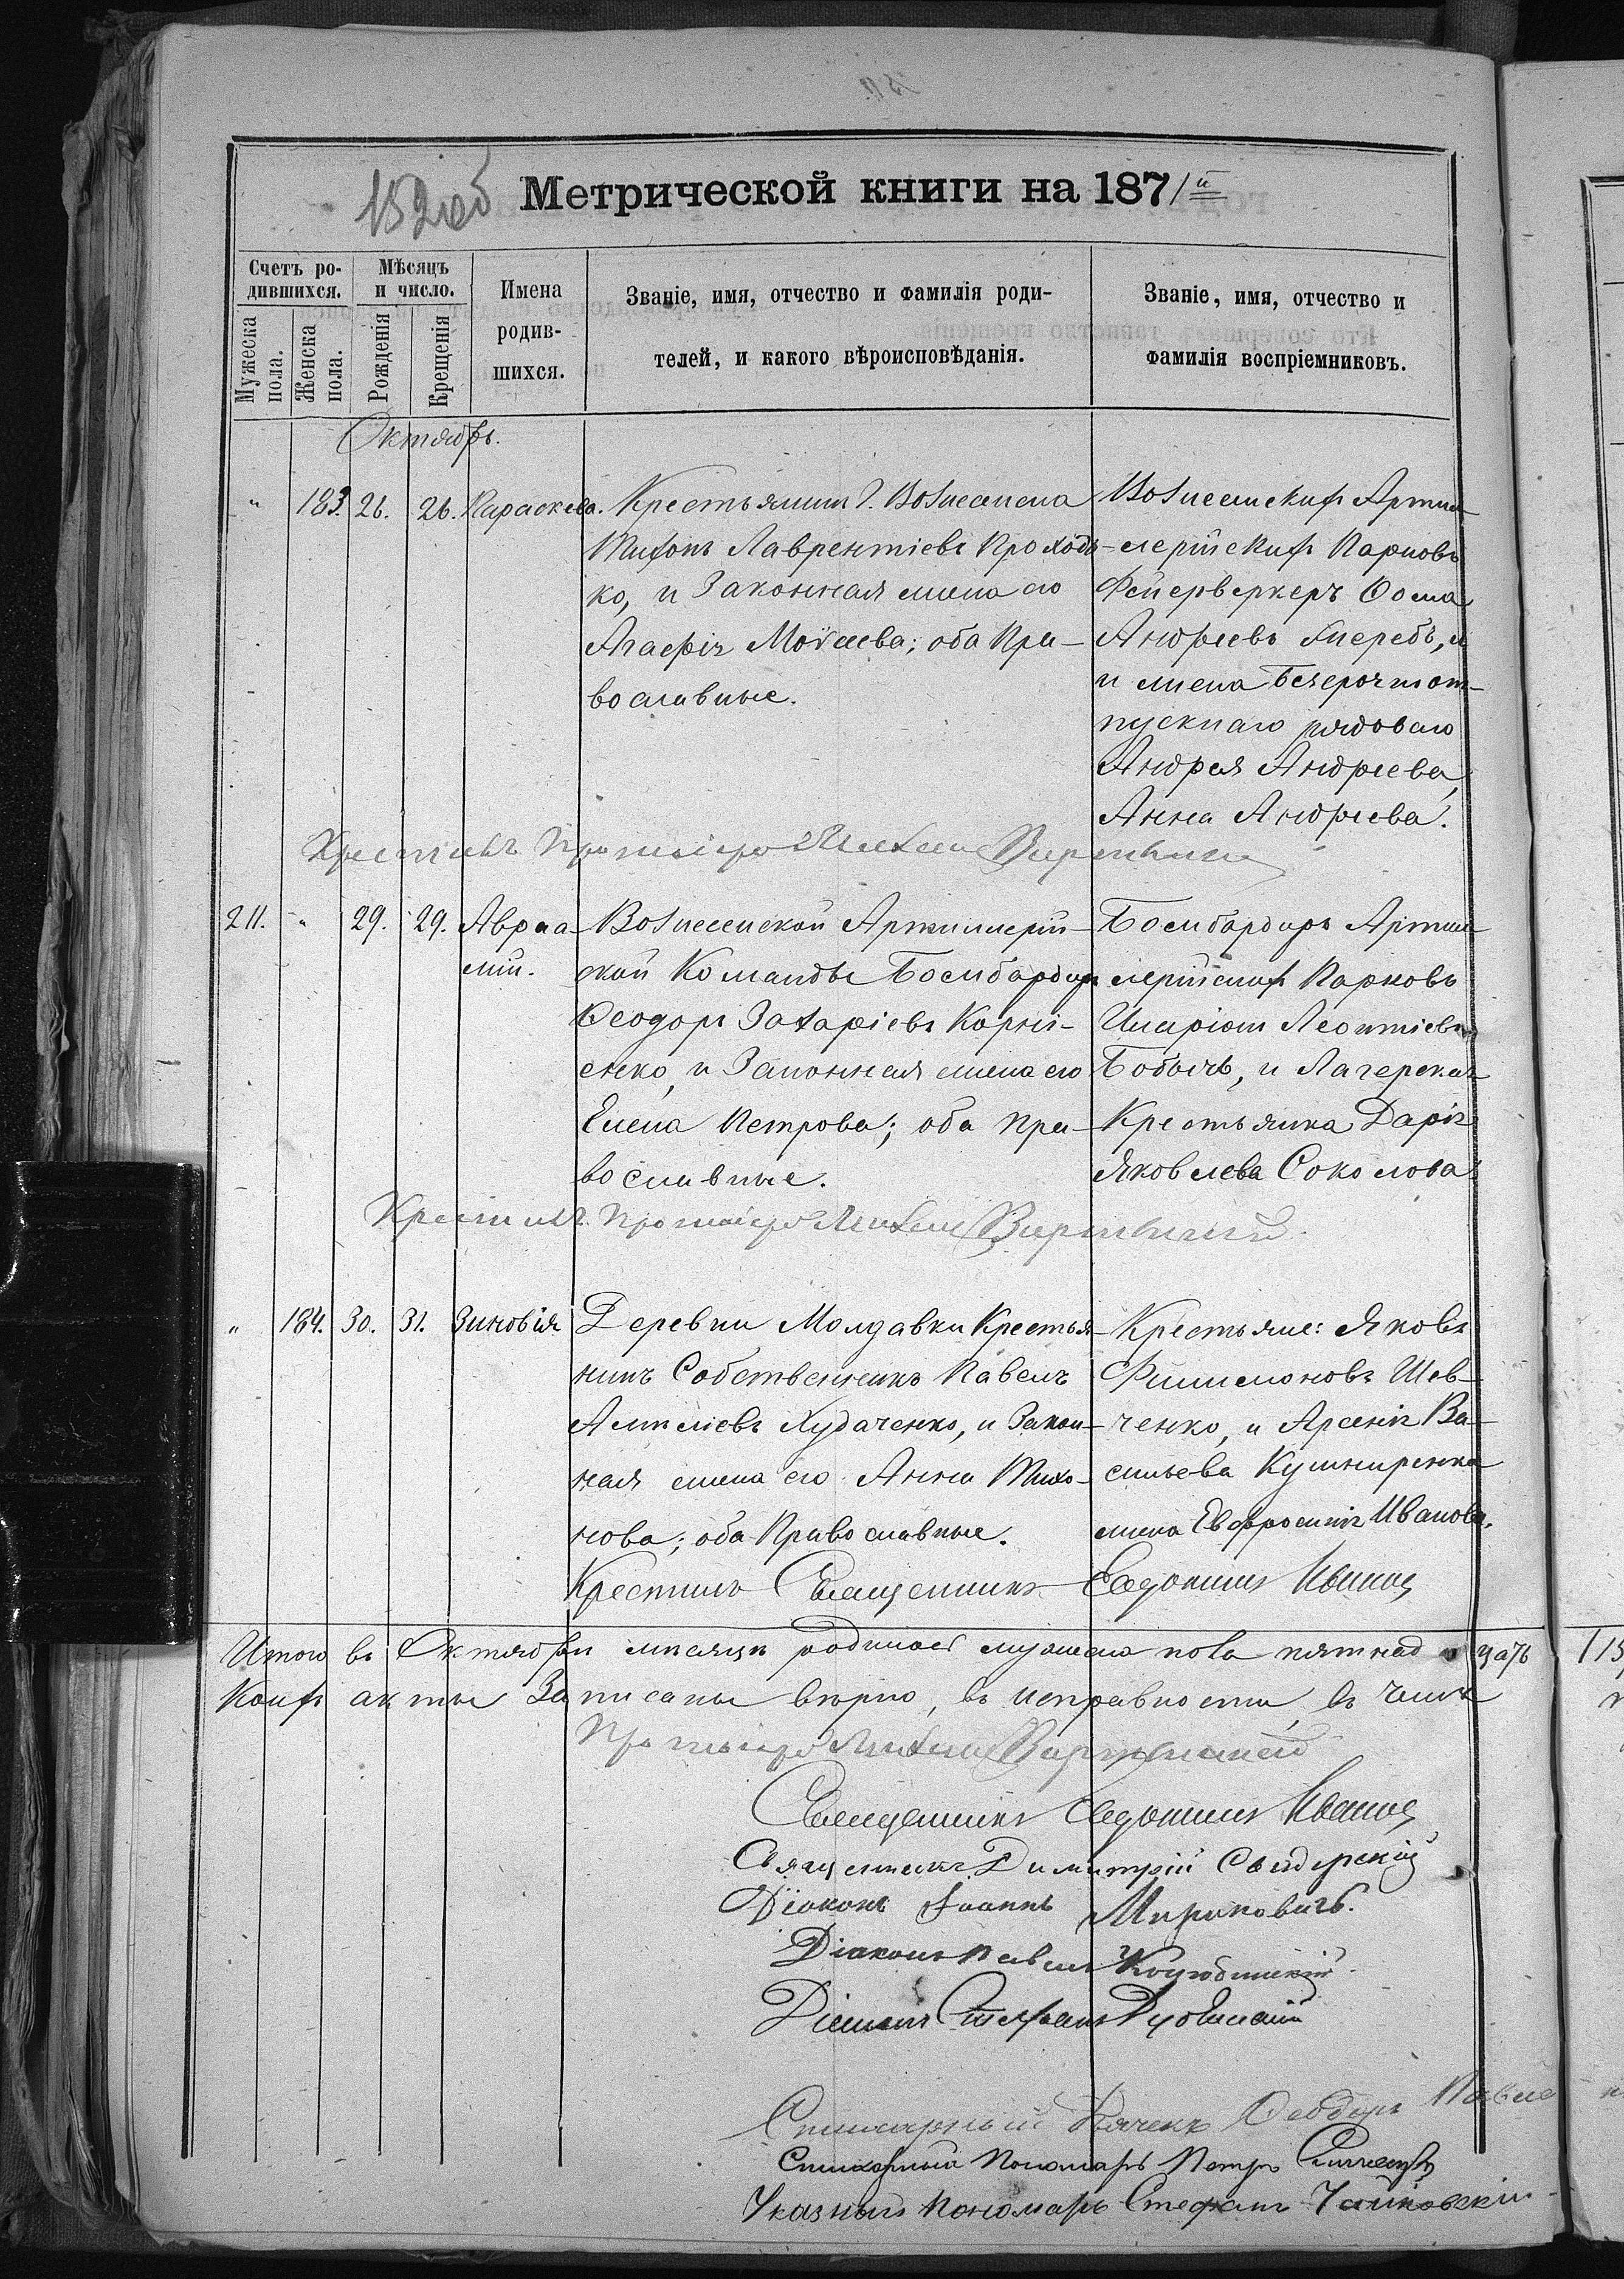 152 об
Метрической книги на 1871й
Счетъ ро-
дившихся.
Мужеска
пола.
Женска
пола.
Мѣсяцъ
и число.
Рожденія
Крещенія
Имена
родив-
шихся.
Званіе, имя, отчество и фамилія роди-
телей, и какого вѣроисповѣданія.
Званіе, имя, отчество и
фамилія воспріемниковъ.
Октябрь.
" 183. 26. 26. Параскева.
Крестьянинъ г. Вознесенска
Тихонъ Лаврентіевъ Проходь-
ко, и Законная жена его
Агафія Моѵсеева; оба Пра-
вославные.
Вознесенскихъ Артил-
лерійскихъ Парковъ
Фейерверкеръ Ѳома
Андреевъ
и жена Безсрочноот-
пускнаго рядоваго
Андрея Андреева,
Анна Андреева.
Крестилъ Протоіерей Михаилъ
211. " 29. 29. Авраа-
мій.
Вознесенской Артиллерій-
ской Команды Бомбардиръ
Ѳеодоръ Захаріевъ Корні-
енко, и Законная жена его
Елена Петрова; оба Пра-
вославные.
Бомбардиръ Артил-
лерійскихъ Парковъ
Иларіонъ Леонтіевъ
Бобычь, и Лагерская
Крестьянка Дарія
Яковлева Соколова.
Крестилъ Протоіерей Михаилъ
" 184. 30. 31. Зиновія
Деревни Молдавки Крестья-
нинъ Собственникъ Павелъ
Худаченко, и Закон-
ная жена его Анна Тихо-
нова; оба Православные.
Крестьяне: Яковъ
Филимоновъ Шев-
ченко, и Арсенія Ва-
сильева Кушниренка
жена Евфросинія Иванова.
Крестилъ Священникъ Евдокимъ
Итого въ Октябрѣ мѣсяцѣ родилось мужеска пола пятнадцать
Коихъ акты Записаны вѣрно, въ исправности, въ чемъ
Протоіерей Михаилъ
Священникъ Евдокимъ
Священникъ Димитрій Свидерскій
Діаконъ Іоаннъ Мироновичъ.
Діаконъ Павелъ Коцюбинскій
Діаконъ Стефанъ
Стихарный Дьячекъ Ѳеодоръ
Стихарный Пономарь Петръ
Указный Пономарь Стефанъ Чайковскій